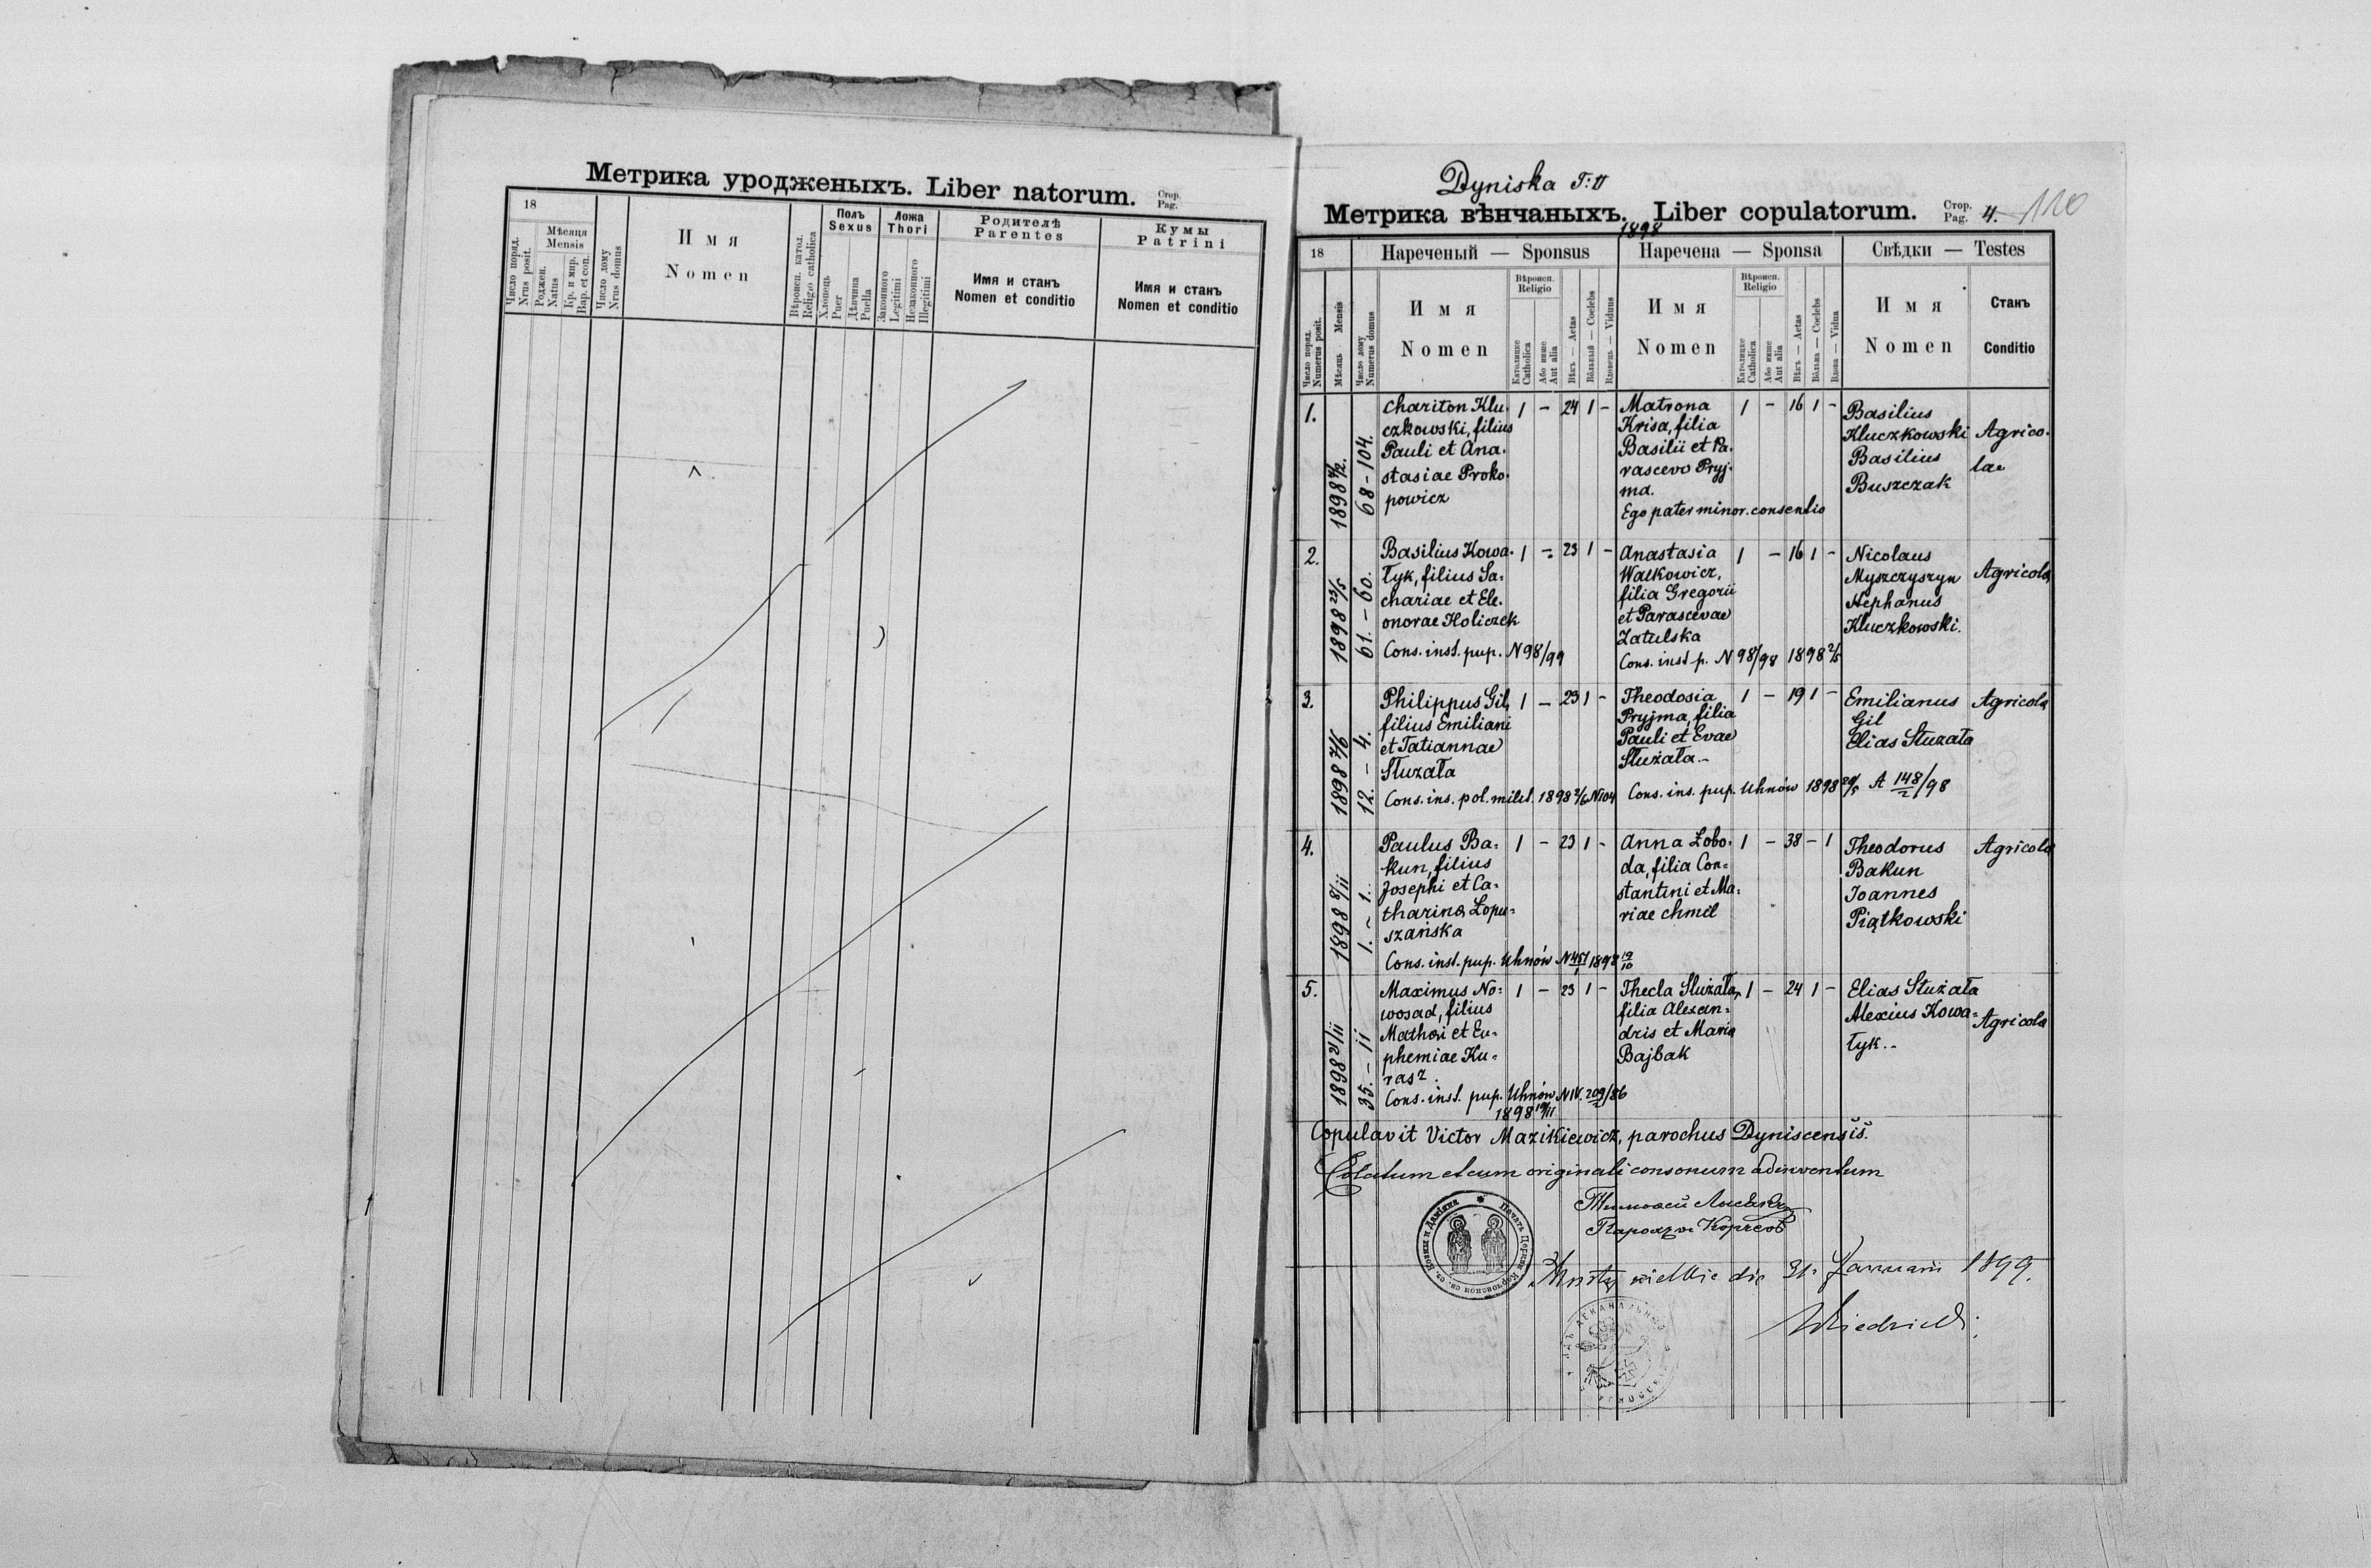 Метрика уродженыхъ. Liber natorum. Стор. Pag.
18
Число поряд. Nrus posit.
Мѣсяця Mensis
Роджен. Natus
Кр. и мир. Bap. et con.
Число дому Nrus domus
Имя
Nomen
Вѣроисп. катол. Religio catholica
Полъ Sexus
Хлопець Puer
Дѣвчина Puella
Ложа Thori
Законного Legitimi
Незаконного Illegitimi
Родителѣ
Parentes
Имя и станъ
Nomen et conditio
Кумы
Patrini
Имя и станъ
Nomen et conditio
Dyniska
Метрика вѣнчаныхъ. Liber copulatorum. Стор. Pag. 4. 110
1898
18
Нареченый — Sponsus
Наречена — Sponsa
Свѣдки — Testes
Число поряд. Numerus posit.
Мѣсяць Mensis
Число дому Numerus domus
Имя
Nomen
Вѣроисп. Religio
Католицке Catholica
Або инше Aut alia
Вѣкъ — Aetas
Вôльный — Coelebs
Вдовець — Viduus
Имя
Nomen
Вѣроисп. Religio
Католицке Catholica
Або инше Aut alia
Вѣкъ — Aetas
Вôльна — Coelebs
Вдова — Vidua
Имя
Nomen
Станъ
Conditio
1.
68 - 104.
Chariton Klu-
czkowski, filius
Pauli et Ana-
stasiae Proko-
powicz
1 - 24 1 -
Matrona
Krisa, filia
Basilii et Pa-
rascevo Pryj-
ma.
Ego pater minor. consentio
1 - 16 1 -
Basilius
Kluczkowski
Basilius
Buszczak
Agrico-
lae
2.
1898 25/5
61. - 60.
Basilius Kowa-
łyk, filius Sa-
chariae et Ele-
onorae Holiczek
Cons. inst. pup. N 98/99
1 - 23 1 -
Anastasia
Walkowicz,
filia Gregorii
et Parascevae
Zatulska
Cons. inst p. N 98/98 1898 2/5
1 - 16 1 -
Nicolaus
Myszczyszyn
Stephanus
Kluczkowski.
Agricola
3.
1898 7/6
12. - 4.
Philippus Gil,
filius Emiliani
et Tatiannae
Służała
Cons. ins. pol. milit. 1898 2/6 N 104
1 - 23 1 -
Theodosia
Pryjma, filia
Pauli et Evae
Służała.-
Cons. ins. pup. Uhnów 1898 A 148/2/98
1 - 19 1 -
Emilianus
Gil
Elias Służała
Agricola
4.
1898 8/11
1. - 1.
Paulus Ba-
kun, filius
Josephi et Ca-
tharina Łopu-
szańska
Cons. inst. pup. Uhnów N 451/1 1898 19/10
1 - 23 1 -
Anna Łobo-
da, filia Con-
stantini et Ma-
riae Chmil
1 - 38 - 1
Theodorus
Bakun
Joannes
Piątkowski
Agricola
5.
1898 21/11
35. - 11
Maximus No-
wosad, filius
Mathei et Eu-
phemiae Ku-
rasz.
Cons. inst. pup. Uhnów N IV. 209/2/86
1898 19/11
1 - 23 1 -
Thecla Służała,
filia Alexan-
dris et Maria
Bajbak
1 - 24 1 -
Elias Służała
Alexius Kowa-
łyk.-
Agricola
Copulavit Victor Mazikiewicz, parochus Dyniscensis.
Colatum et cum originali consonum adinventum
Парохъ Корчевъ
wielkie die 31 Januarii 1899.